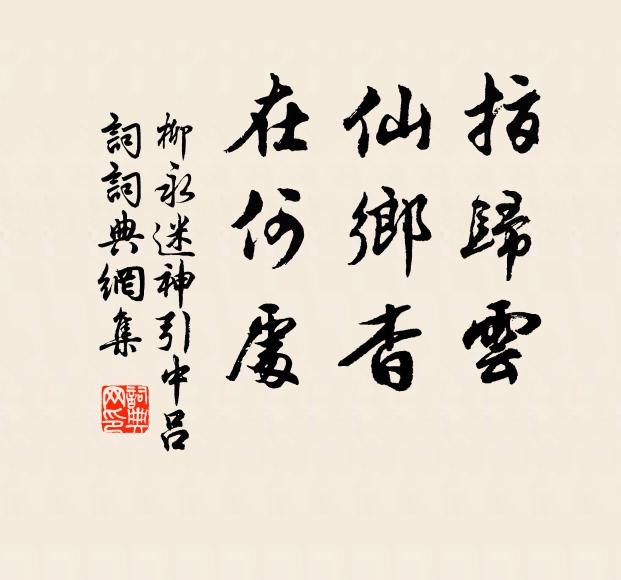 指歸雲
仙鄉杳
在何處
柳永迷神引中呂
詞詞典網集
詞典
网印